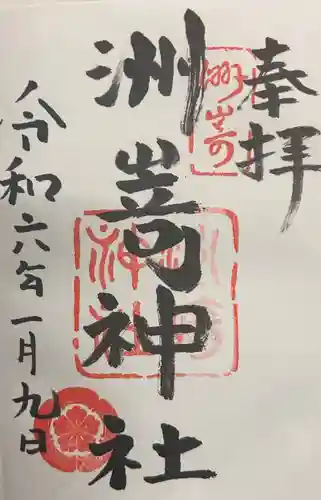 奉拝
洲嵜
洲嵜神社
令和六年一月九日